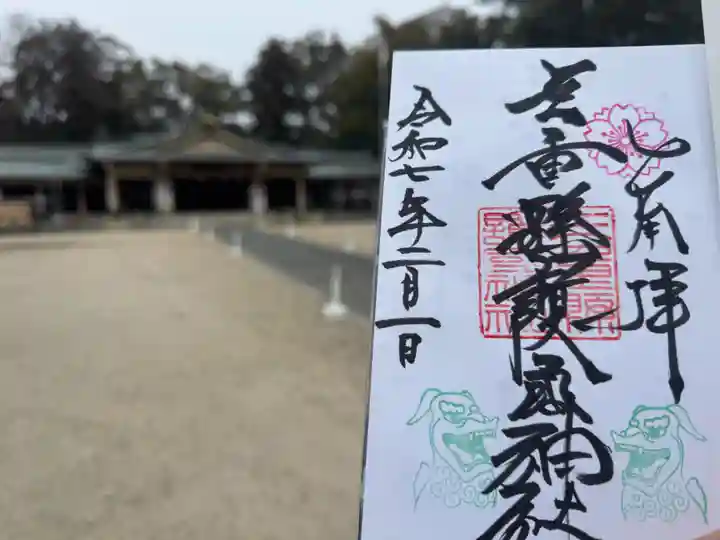 奉拝
三重縣護國神社
令和七年二月一日